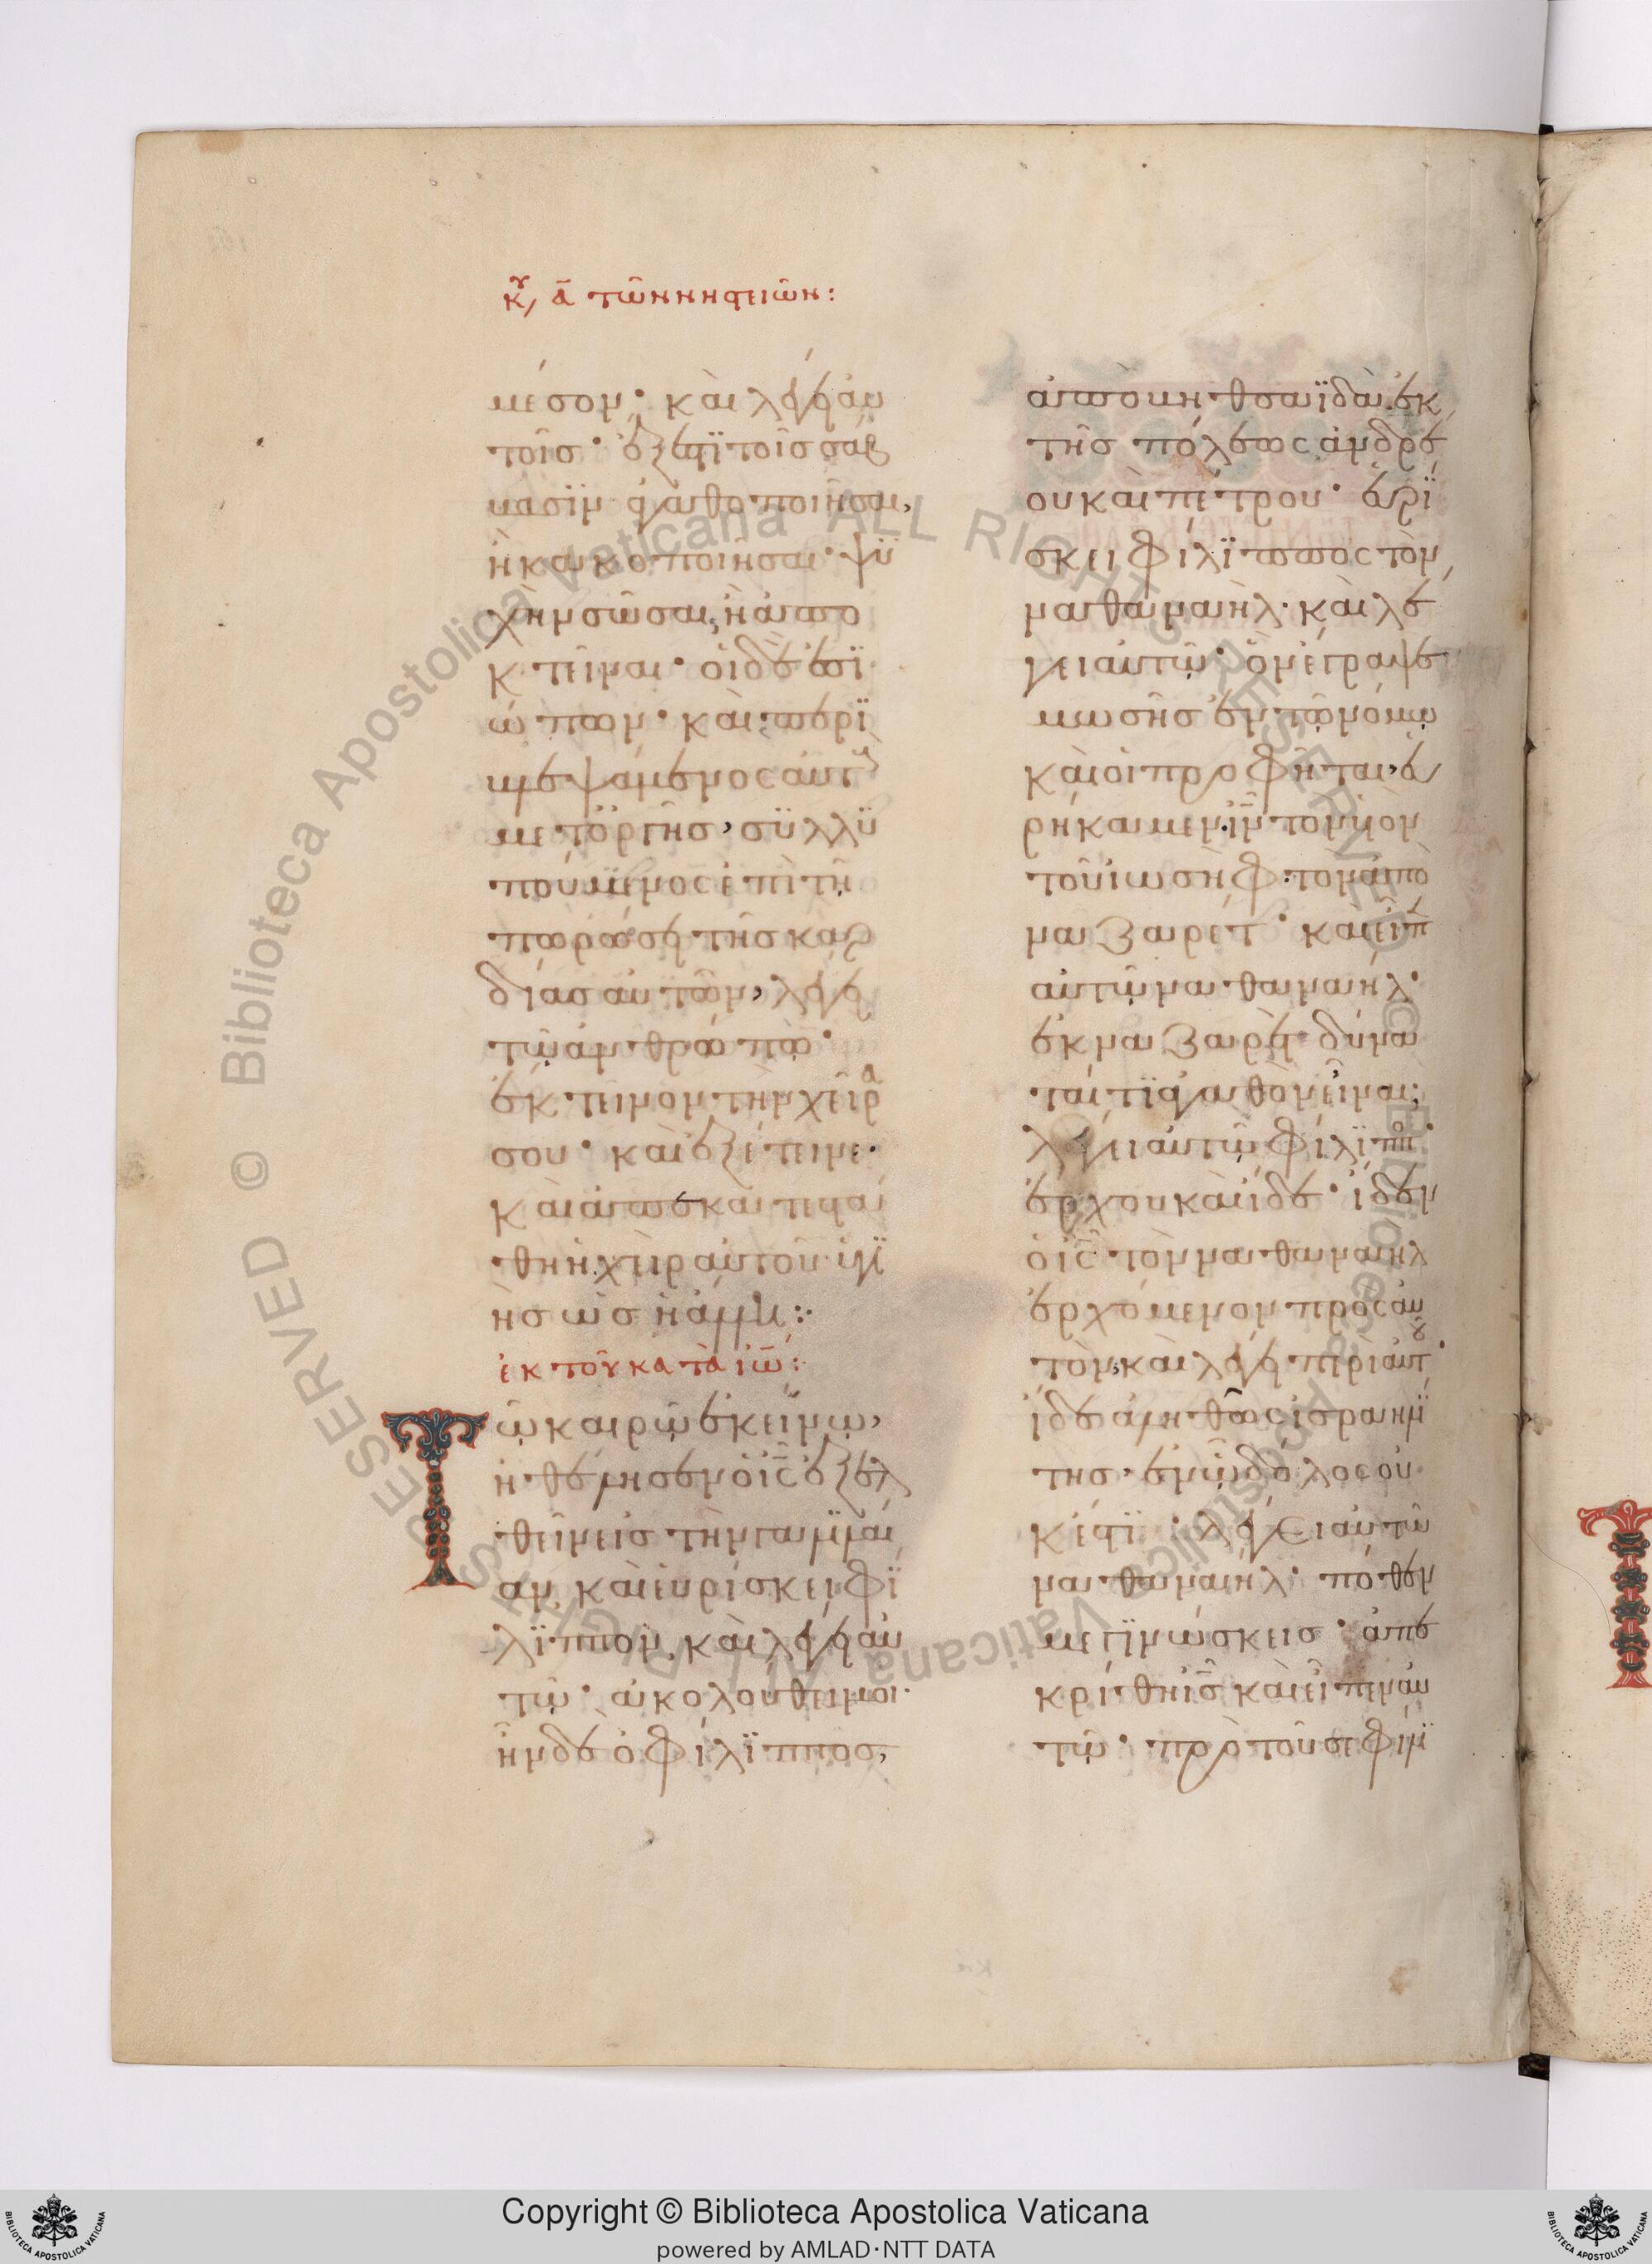 κυ, ᾱ τῶν νηστειῶν:
μέσον· καὶ λέγει αὐ
τοῖς· ἔξεστϊ τοῖς σάβ
βασϊν ἀγαθοποιῆσαι,
ἢ κακοποιῆσαι· ψϋ
χὴν σῶσαι, ἢ ἀπο
κτεῖναι· οἱ δὲ ἐσϊ
ώπων· καὶ περϊ
βλεψάμενος αὐτοὺς
μετ' ὀργῆς, σϋλλϋ
πούμενος ἐπὶ τῆ
πωρώσει τῆς καρ
δίας αὐτῶν, λέγει
τῶ ἀνθρώπω·
ἔκτεινον τὴν χεῖρα
σου· καὶ ἐξέτεινε·
καὶ ἀπεκατεστά
θη ἡ χεὶρ αὐτοῦ ὑγϊ
ὴς ὡς ἡ ἄλλη:·
ἐκ τοῦ κατὰ ἰω̄:
Τῶ καιρῶ ἐκείνω,
ἠθέλησεν ὁ ις̄ ἐξελ
θεῖν εἰς τὴν γαλϊλαί
αν, καὶ εὑρίσκει φί
λϊππον, καὶ λέγει αὐ
τῶ· ἀκολούθει μοι·
ἦν δὲ ὁ φίλϊππος,
ἀπὸ βηθσαϊδὰ, ἐκ
τῆς πόλεως ἀνδρέ
ου καὶ πέτρου· εὑρί
σκει φίλϊππος τὸν
ναθαναὴλ· καὶ λέ
γει αὐτῶ· ὃν ἔγραψε
μωσῆς ἐν τῶ νόμω
καὶ οἱ προφῆται, εὑ
ρήκαμεν ιν̄ τὸν υἱὸν
τοῦ ἰωσὴφ· τὸν ἀπὸ
ναζαρέτ· καὶ εἶπ
αὐτῶ ναθαναήλ·
ἐκ ναζαρὲτ δύνα
ταί τϊ ἀγαθὸν εἶναι;
λέγει αὐτῶ φίλϊππ·
ἔρχου καὶ ἴδε· ἴδεν
ὁ ις̄ τὸν ναθαναηλ
ἐρχόμενον πρὸς αὐ
τὸν, καὶ λέγει περὶ αὐτου·
ἴδε ἀληθῶς ἰσραηλϊ
της· ἐν ῶ δόλος οὐ
κ ἔστϊ· λέγει αὐτῶ
ναθαναήλ· πόθεν
με γϊνώσκεις· ἀπε
κρίθη ις̄ καὶ εἶπεν αὐ
τῶ· πρὸ τοῦ σε φίλϊ
Copyright © Biblioteca Apostolica Vaticana
powered by AMLAD·NTT DATA